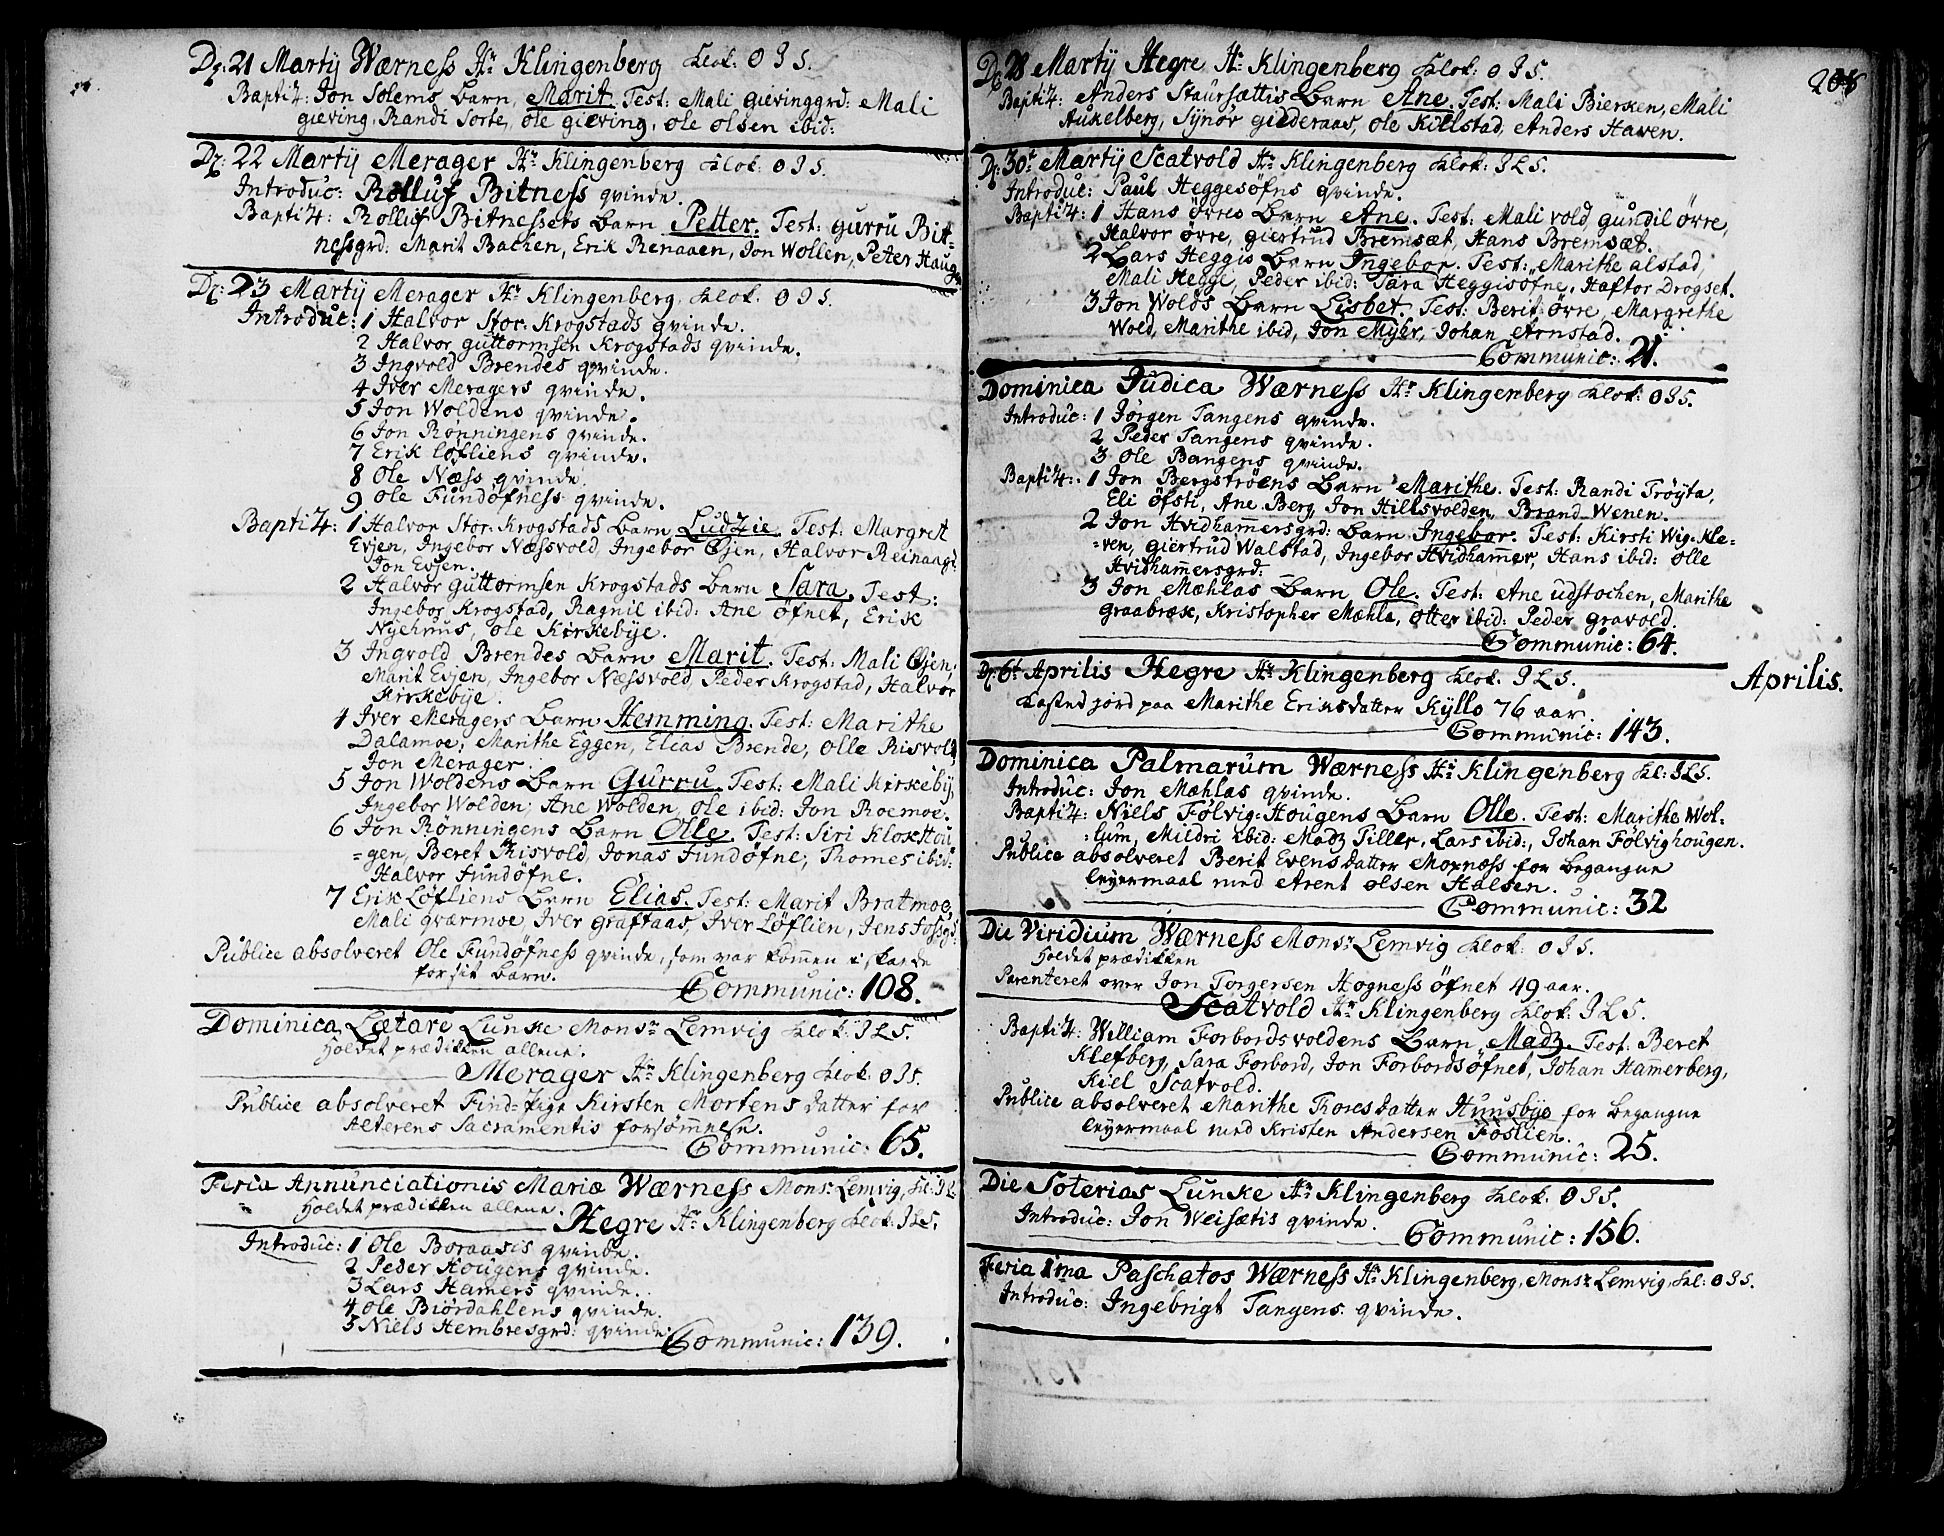 D: 21 Martÿ Wærness Hr Klingenberg Klok: O I S.
Baptiz: Jon Solems Barn, Marit. Test: Mali gievinggrd: Mali
gieving, Randi Sorte, ole gieving, ole olsen ibid:
D: 22 Martÿ Merager Hr Klingenberg Klok: O I S.
Introduc: Rolluf Bitness qvinde.
Baptiz: Rolluf Bitnessets Barn Petter. Test: gurru Bit=
nessgrd: Marit Bachen, Erik Renaaen, Jon Wollen, Peter Haug
D: 23 Martÿ Merager Hr Klingenberg, Klok: O I S.
Introduc: 1 Halvor Stor: Krogstads qvinde.
2 Halvor guttormsen Krogstads qvinde.
3 Ingvold Brendes qvinde.
4 Iver Meragers qvinde.
5 Jon Woldens qvinde.
6 Jon Rønningens qvinde.
7 Erik Løfliens qvinde.
8 Ole Næss qvinde.
9 Ole Fundøfness qvinde.
Baptiz: 1 Halvor Stor: Krogstads Barn Ludzie. Test: Margret
Evjen, Ingebor Næssvold, Ingebor Øjen, Halvor Reinaag:
Jon Evjen.
2 Halvor Guttormsen Krogstads Barn Sara. Test:
Ingebor Krogstad, Ragnil ibid: Ane öfnet, Erik
Nyehuus, ole Kirkebÿe.
3 Ingvold Brendes Barn Marit. Test: Mali Øjen,
Marit Evjen, Ingebor Næssvold, Peder Krogstad, Halvor
Kirkebÿe.
4 Iver Meragers Barn Hemming. Test: Marithe
Dalamoe, Marithe Eggen, Elias Brende, Olle Risvold,
Jon Merager.
5 Jon Woldens Barn Gurru. Test: Mali Kirkebÿ,
Ingebor Wolden, Ane Wolden, ole ibid: Jon Roemoe.
6 Jon Rønningens Barn Olle. Test: Siri Klokhou
=gen, Beret Risvold, Jonas Fundøfne, Thomes ibid:
Halvor Fundøfne.
7 Erik Løfliens Barn Elias. Test: Marit Bratmoe,
Mali qværmoe, Iver graftaas, Iver Løflien, Jens Fossgd:
Publice absolveret Ole Fundøfness qvinde, som var kommen i skade
for sit Barn.
Communic: 108.
Dominica Lætare Lunke Monsr Lemvig Klok: I L S.
Holdet prædikken allene.
Merager Hr Klingenberg Klok: O I S.
Publice absolveret Find-Pige Kirsten Mortensdatter for
Alterens Sacramentis forsømmelse.
Communic: 65.
Feria Annunciationis Mariæ Wærness Monsr Lemvig, Kl: I L
Holdet prædikken allene.
Hegre Hr Klingenberg Klok: I L S.
Introduc: 1 Ole Boraasis qvinde.
2 Peder Hougens qvinde.
3 Lars Hamers qvinde.
4 Ole Biördahlens qvinde.
5 Niels Hembresgrd: qvinde
Communic: 139.
D: 28 Martÿ Hegre Hr Klingenberg Klok: O I S.
Baptiz: Anders Staursættis Barn Ane. Test: Mali Biersken, Mali
Aukelberg, Synor giederaas, ole Killstad, Anders Haven.
D: 30t Martÿ Scatvold Hr Klingenberg Klok: I L S.
Introduc: Paul Heggesöfns qvinde.
Baptiz: 1 Hans övres Barn Ane. Test: Mali vold, gundil övre,
Halvor övre, giertrud Bremsæt, Hans Bremsæt.
2 Lars Heggis Barn Ingebor. Test: Marithe alstad,
Mali Heggi, Peder ibid: Sara Heggisöfne, Haftor Drogset.
3 Jon Wolds Barn Lisbet. Test: Berit övre, Margrethe
Wold, Marithe ibid, Jon Myhr, Johan Arnstad.
Communic: 21.
Dominica Judica Wærness Hr Klingenberg Klok: O I S.
Introduc: 1 Jörgen Tangens qvinde.
2 Peder Tangens qvinde.
3 Ole Bangens qvinde.
Baptiz: 1 Jon Bergströens Barn Marithe. Test: Randi Tröyta,
Eli öfsti, Ane Berg, Jon Hillsvolden, Brand Wenen.
2 Jon Hvidhammersgrd: Barn Ingebor. Test: Kirsti Wig-Kle=
=ven, giertrud Walstad, Ingebor Hvidhammer, Hans ibid: Olle
Hvidhammersgrd:
3 Jon Mæhlas Barn Ole. Test: Ane udstochen, Marithe
graabræk, Kristopher Mæhla, otter ibid: Peder gravold.
Communic: 64.
Aprilis.
D: 6t Aprilis Hegre Hr Klingenberg Klok. I L S.
Kasted jord paa Marithe Eriksdatter Kÿllo 76 aar.
Communic: 143.
Dominica Palmarum Wærness Hr Klingenberg Kl: I L S.
Introduc: Jon Mæhlas qvinde.
Baptiz: Niels Fölvig-Hougens Barn Olle. Test: Marithe Wol=
=lum, Mildri ibid: Madz Tiller, Lars ibid:, Johan Fölvighougen.
Publice absolveret Berit Evensdatter Moxness for begangne
leyermaal med Arent olsen Halsen.
Communic: 32
Die Viridium Wærness Monsr Lemvig Klok: O I S.
Holdet prædikken
Parenteret over Jon Torgersen Hogness öfnet 49 aar.
Scatvold Hr Klingenberg Klok: I L S.
Baptiz: William Forbordsvoldens Barn Madz. Test: Beret
Klefberg, Sara Forbord, Jon Forbordsöfnet, Johan Hamerberg,
Kiel Scatvold.
Publice absolveret Marithe Thoresdatter Huusbye for begangne
leyermaal med Kristen Andersen Föslien.
Communic: 25.
Die Soterias Lunke Hr Klingenberg Klok: O I S.
Introduc: Jon Weisætis qvinde.
Communic: 156.
Feria 1ma Paschatos Wærness Hr Klingenberg, Monsr Lemvig, Kl: O I S.
Introduc: Ingebrigt Tangens qvinde.